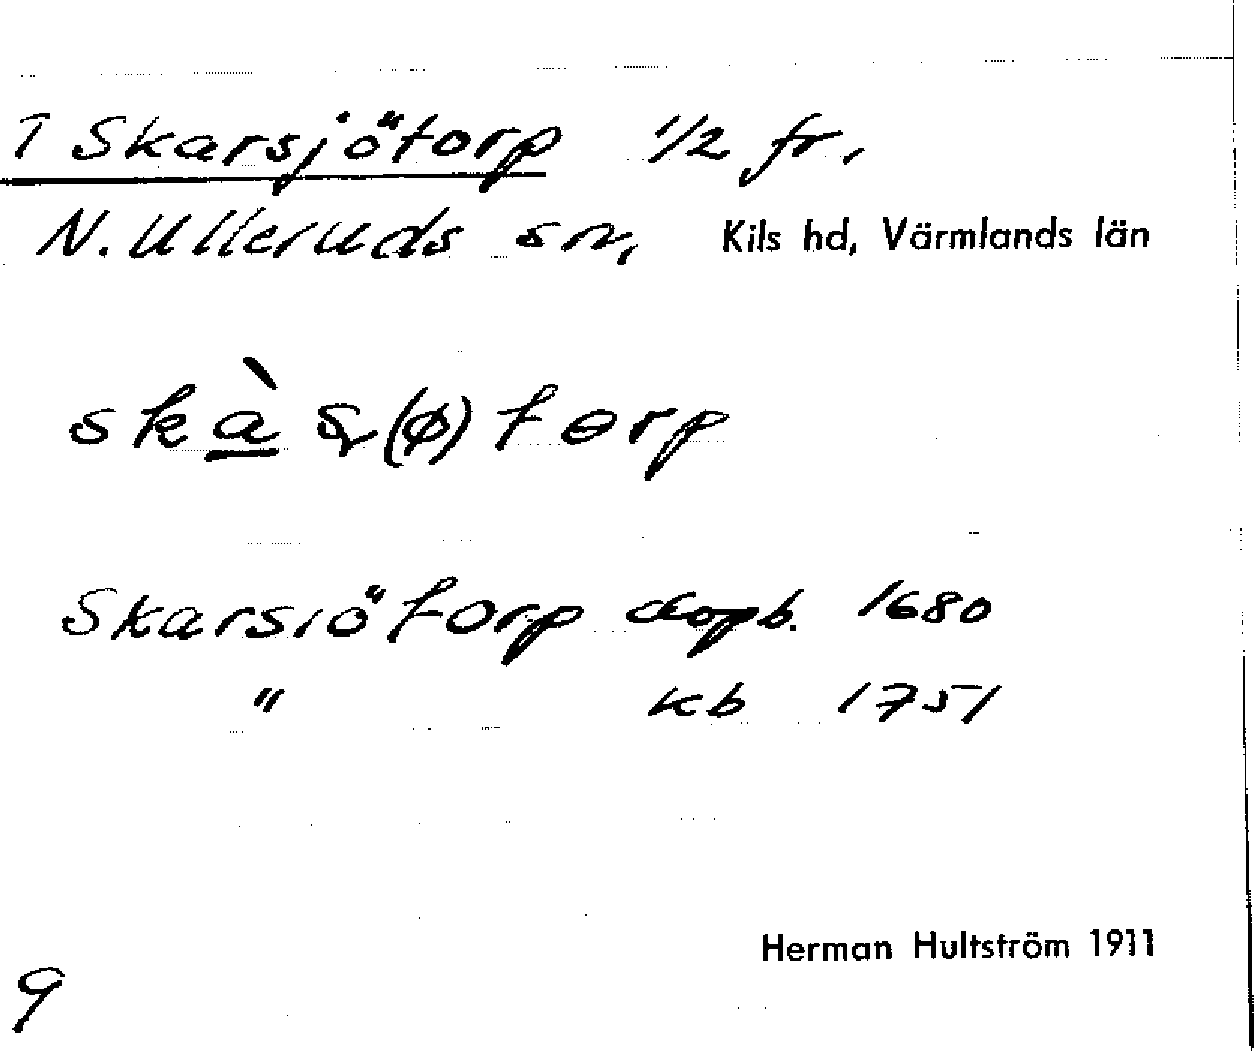 1 Skarsjötorp 1/2 fr.
N. Ulleruds sn, Kils hd, Värmlands län
skà̱ʂ(ø)tɵrp
Skarsiötorp dopb. 1680
" kb 1751
Herman Hultström 1911
9